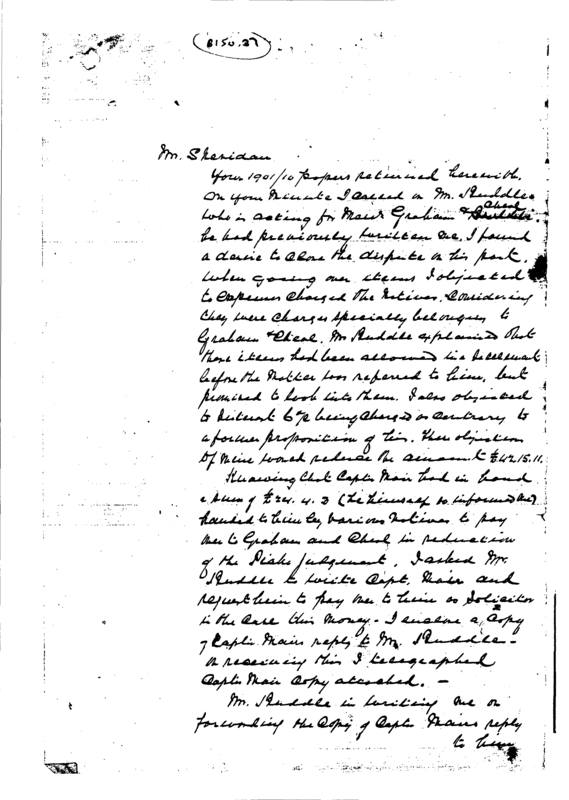 8150.27
Mr. Sheridan
Your 1901/10 papers returned herewith.
On your Minute I called on Mr. Ruddle
who is acting for Messrs Graham & Cheal
he had previously written me. I found
a desire to close the dispute on his part.
When going over items I objected
to expenses charged the Natives. Considering
they were charges specially belonging to
Graham & Cheal. Mr Ruddle explained that
those items had been allowed in a settlement
before the Matter was referred to him, but
promised to look into them. I also objected
to Interest 6% being charged as contrary to
a former proposition of his. These objections
of mine would reduce the amount £42.15.11.
Knowing that Captn Mair had in hand
a sum of £24.4.3 (he himself so informed me)
handed to him by various Natives to pay
over to Graham and Cheal in reduction
of the Piako judgement, I asked Mr.
Ruddle to write Capt. Mair and
request him to pay over to him as Solicitor
in the case this money - I enclose a copy
of Captn Mairs reply to Mr. Ruddle -
On receiving this I telegraphed
Captn Mair Copy attached. -
Mr. Ruddle in writing me on
forwarding the Copy of Captn Mairs reply
to him